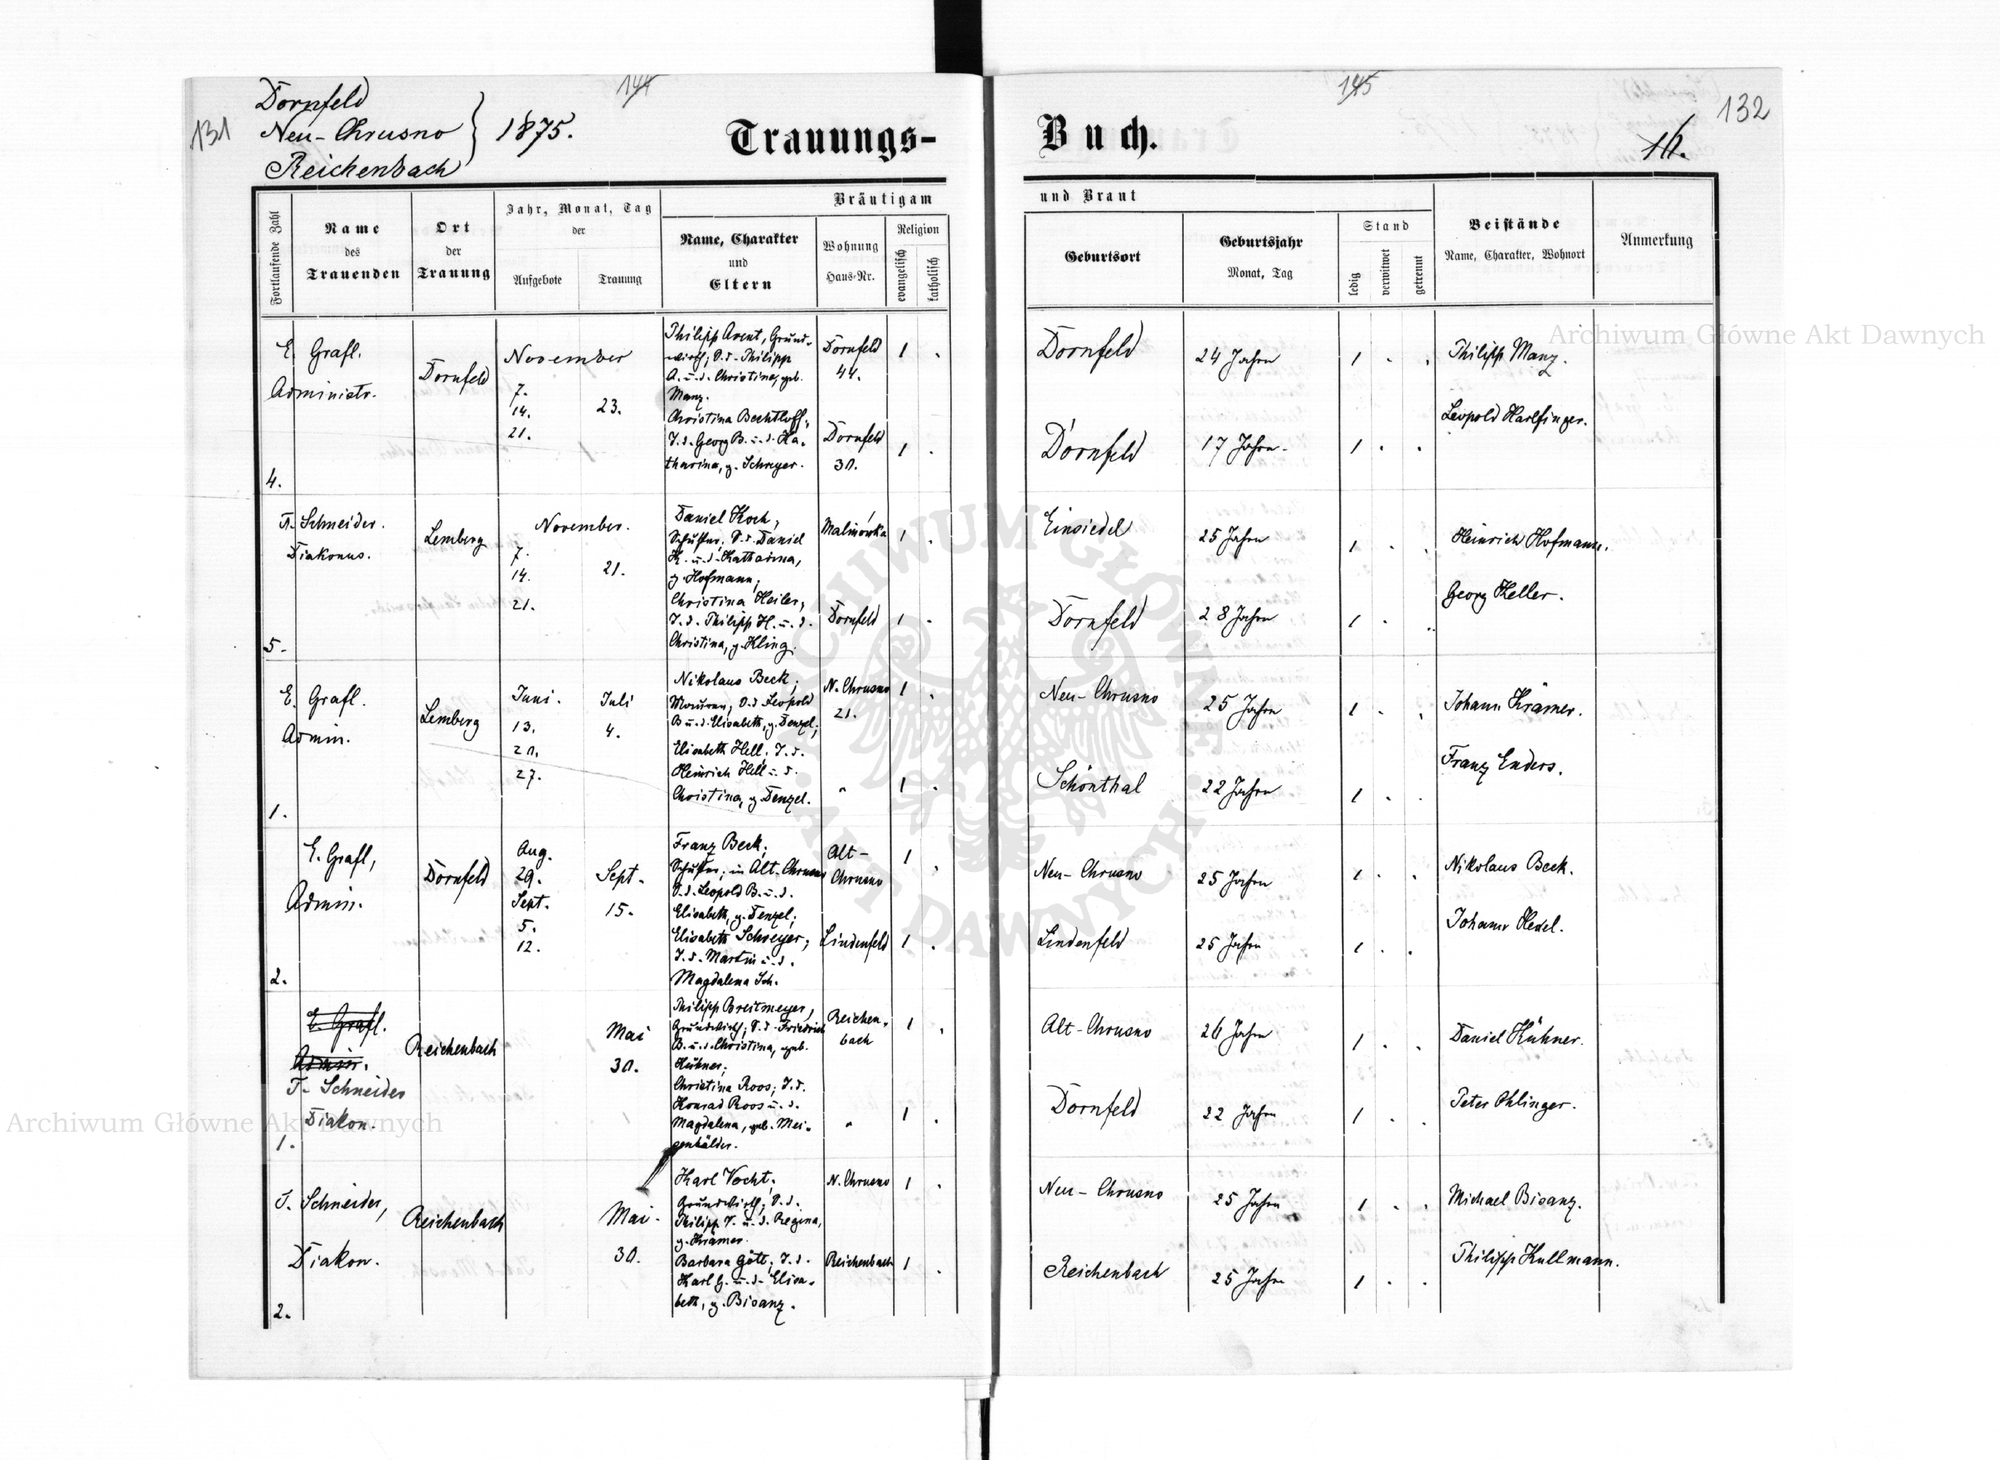 144
145
131
132
16.
Dornfeld
Neu-Chrusno } 1875.
Reichenbach
Trauungs-Buch.
Fortlaufende Zahl
Name des Trauenden
Ort der Trauung
Jahr, Monat, Tag der
Aufgebote
Trauung
Bräutigam und Braut
Name, Charakter und Eltern
Wohnung Haus-Nr.
Religion
evangelisch
katholisch
Geburtsort
Geburtsjahr Monat, Tag
Stand
ledig
verwitwet
getrennt
Beistände
Name, Charakter, Wohnort
Anmerkung
4.
E. Grafl.
Administr.
Dornfeld
November
7.
14.
21.
23.
Philipp Arent, Grund-
wirth; S. d. Philipp
A. u. d. Christina, geb.
Manz.
Christina Bechtloff,
T. d. Georg B. u. d. Ka-
tharina, g. Schreyer.
Dornfeld
44.
1 .
Dornfeld
30.
1 .
Dornfeld
24 Jahre
1 . .
Philipp Manz.
Dornfeld
17 Jahre.
1 . .
Leopold Harlfinger.
5.
T. Schneider.
Diakonus.
Lemberg
November.
7.
14.
21.
21.
Daniel Koch,
Schuster, S. d. Daniel
K. u. d. Katharina,
g. Hofmann;
Christina Heiler,
T. d. Philipp H. u. d.
Christina, g. Kling.
Malinówka
1 .
Dornfeld
1 .
Einsiedel
25 Jahre
1 . .
Heinrich Hofmann.
Dornfeld
28 Jahre
1 . .
Georg Keller.
1.
E. Grafl.
Admin.
Lemberg
Juni.
13.
20.
27.
Juli
4.
Nikolaus Beck,
Maurer; S. d. Leopold
B. u. d. Elisabeth, g. Denzel;
Elisabeth Hell, T. d.
Heinrich Hell u. d.
Christina, g. Denzel.
N. Chrusno
21.
1 .
"
1 .
Neu-Chrusno
25 Jahre
1 . .
Johann Krämer.
Schönthal
22 Jahre
1 . .
Franz Enders.
2.
E. Grafl,
Admin.
Dornfeld
Aug.
29.
Sept.
5.
12.
Sept.
15.
Franz Beck,
Schuster, in Alt-Chrusno
S. d. Leopold B. u. d.
Elisabeth, g. Denzel;
Elisabeth Schreyer,
T. d. Martin u. d.
Magdalena Sch.
Alt-
Chrusno
1 .
Lindenfeld
1 .
Neu-Chrusno
25 Jahre
1 . .
Nikolaus Beck.
Lindenfeld
25 Jahre
1 . .
Johann Hexel.
1.
E. Grafl.
Admin.
T. Schneider
Diakon.
Reichenbach
Mai
30.
Philipp Breitmeyer,
Grundwirth; S. d. Friedrich
B. u. d. Christina, geb.
Hühner;
Christina Roos; T. d.
Konrad Roos u. d.
Magdalena, geb. Mei-
genhälder.
Reichen-
bach
1 .
"
1 .
Alt-Chrusno
26 Jahre
1 . .
Daniel Hühner.
Dornfeld
22 Jahre
1 . .
Peter Ohlinger.
2.
T. Schneider,
Diakon.
Reichenbach
Mai.
30.
Karl Vocht,
Grundwirth; S. d.
Philipp V. u. d. Regina,
g. Krämer.
Barbara Gött, T. d.
Karl G. u. d. Elisa-
beth, g. Bisanz.
N. Chrusno
1 .
Reichenbach
1 .
Neu-Chrusno
25 Jahre
1 . .
Michael Bisanz.
Reichenbach
25 Jahre
1 . .
Philipp Kullmann.
Archiwum Główne Akt Dawnych
Archiwum Główne Akt Dawnych
ARCHIWUM GŁÓWNE AKT DAWNYCH